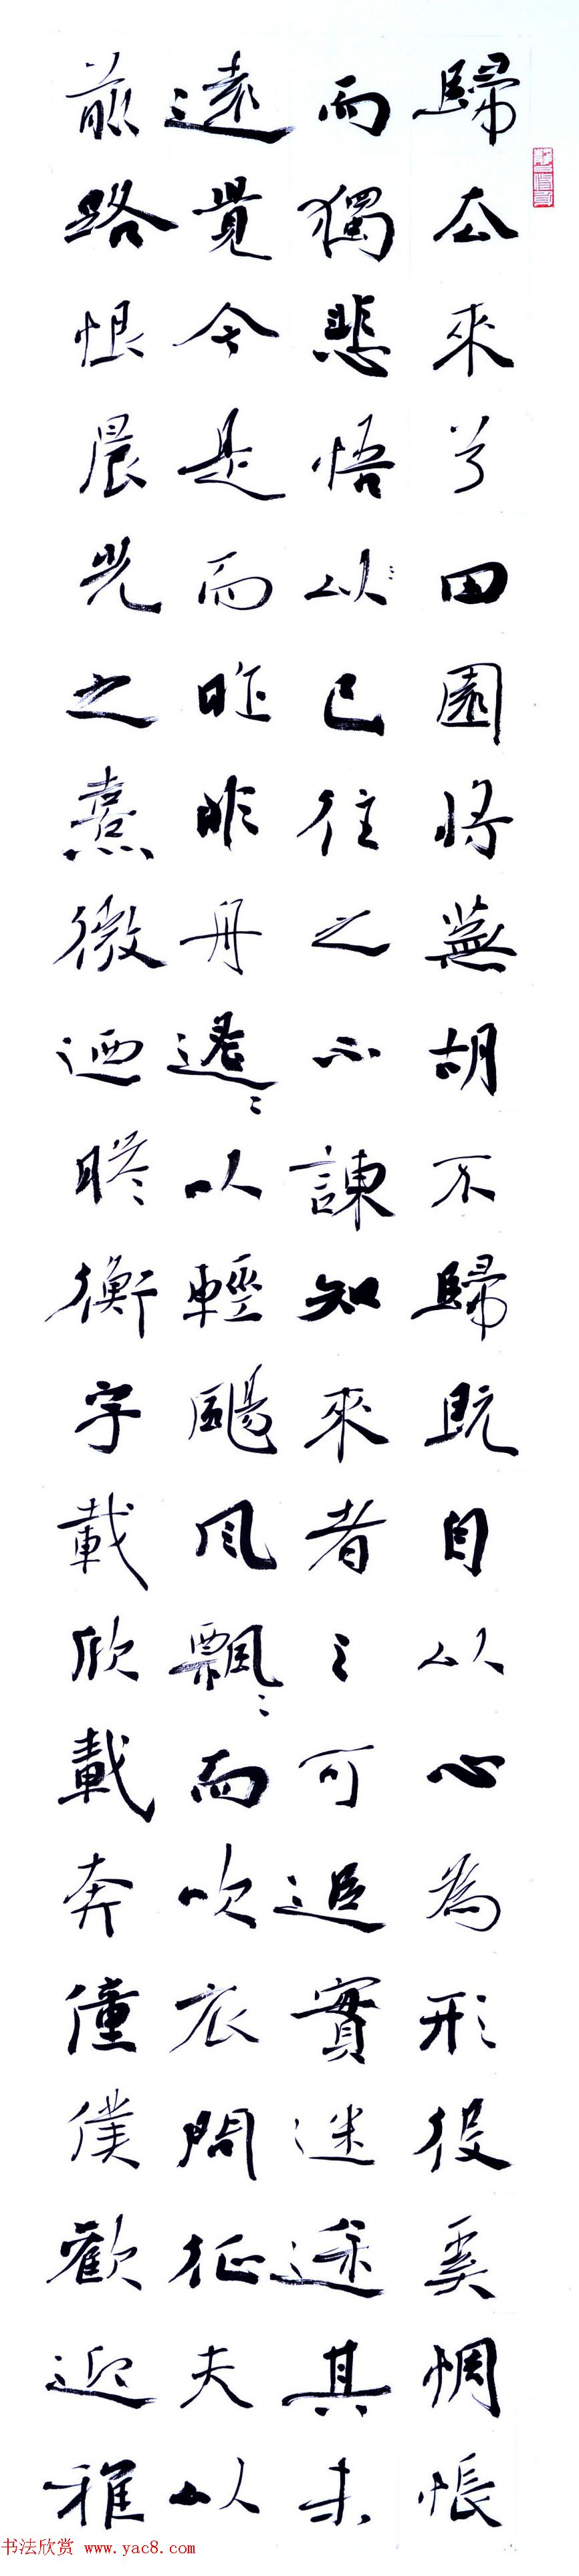 歸去來兮田園將蕪胡不歸既自以心為形役奚惆悵
而獨悲悟以已往之不諫知來者之可追實迷途其未
遠覺今是而昨非舟遙〻以輕颺風飄〻而吹衣問征夫以
前路恨晨光之熹微迺瞻衡宇載欣載奔僮僕歡迎稚
书法欣赏 www.yac8.com